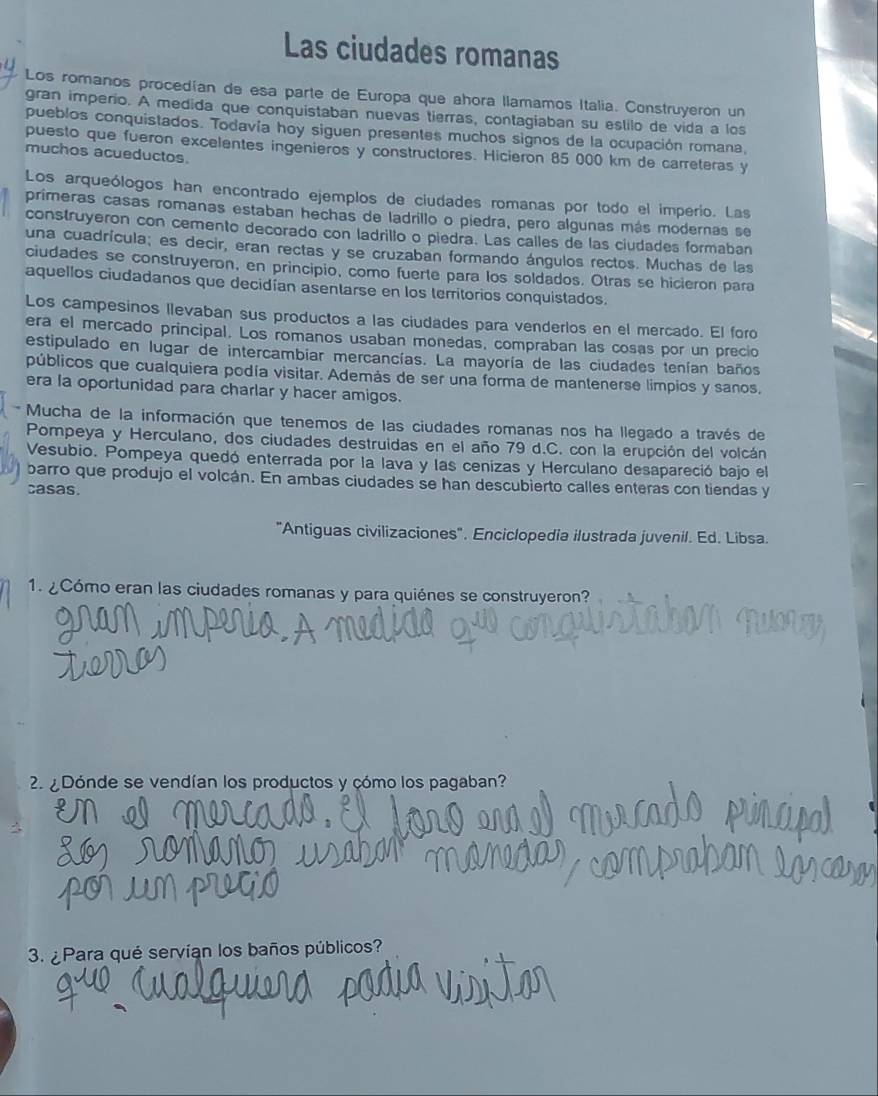 Las ciudades romanas
Los romanos procedían de esa parte de Europa que ahora llamamos Italia. Construyeron un
gran imperio. A medida que conquistaban nuevas tierras, contagiaban su estilo de vida a los
pueblos conquistados. Todavía hoy siguen presentes muchos signos de la ocupación romana,
puesto que fueron excelentes ingenieros y constructores. Hicieron 85 000 km de carreteras y
muchos acueductos.
Los arqueólogos han encontrado ejemplos de ciudades romanas por todo el imperio. Las
primeras casas romanas estaban hechas de ladrillo o piedra, pero algunas más modernas se
construyeron con cemento decorado con ladrillo o piedra. Las calles de las ciudades formaban
una cuadrícula; es decir, eran rectas y se cruzaban formando ángulos rectos. Muchas de las
ciudades se construyeron, en principio, como fuerte para los soldados. Otras se hicieron para
aquellos ciudadanos que decidían asentarse en los territorios conquistados.
Los campesinos llevaban sus productos a las ciudades para venderlos en el mercado. El foro
era el mercado principal. Los romanos usaban monedas, compraban las cosas por un precio
estipulado en lugar de intercambiar mercancías. La mayoría de las ciudades tenían baños
públicos que cualquiera podía visitar. Además de ser una forma de mantenerse limpios y sanos,
era la oportunidad para charlar y hacer amigos.
Mucha de la información que tenemos de las ciudades romanas nos ha llegado a través de
Pompeya y Herculano, dos ciudades destruidas en el año 79 d.C. con la erupción del volcán
Vesubio. Pompeya quedó enterrada por la lava y las cenizas y Herculano desapareció bajo el
barro que produjo el volcán. En ambas ciudades se han descubierto calles enteras con tiendas y
casas.
"Antiguas civilizaciones". Enciclopedia ilustrada juvenil. Ed. Libsa.
1. ¿Cómo eran las ciudades romanas y para quiénes se construyeron?
gran imperio. A medida que conquistaban nuevas
tierras
2. ¿Dónde se vendían los productos y cómo los pagaban?
en el mercado. El foro era el mercado principal
Los romanos usaban monedas, compraban las casas
por un precio
3. ¿Para qué servían los baños públicos?
que cualquiera podia visitar